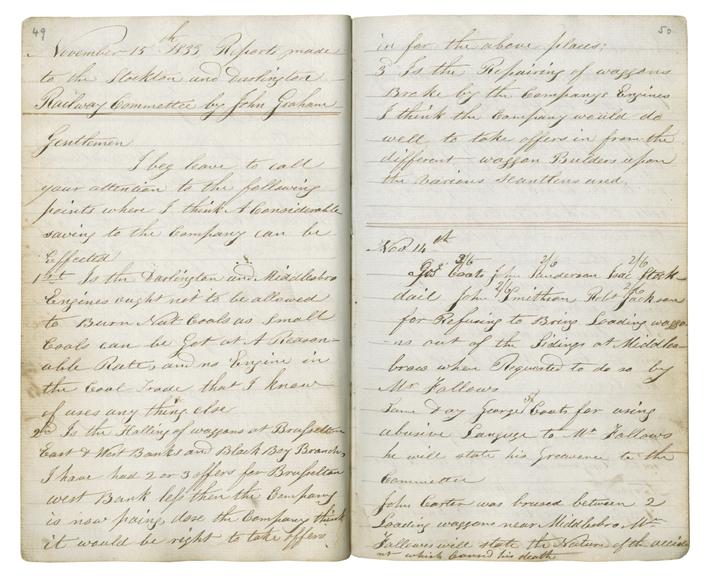 49
November 15th 1833 Reports made
to the Stockton and Darlington
Railway Committee by John Graham
Gentlemen
I beg leave to call
your attention to the following
points where I think A Considerable
saving to the Company can be
Effected
1st Is the Darlington and Middlesbro
Engines ought not to be allowed
to Burn Nut Coals as Small
Coals can be Got at A Reason-
able Rate, and no Engine in
the Coal Trade that I know
of uses any thing else
2nd Is the Halling of waggons at Brusselton
East & West Banks and Black Boy Branch,
I have had 2 or 3 offers for Brusselton
west Bank less then the Company
is now paing, dose the Company think
it would be right to take offers
50
in for the above places;
3 Is the Repairing of waggons
Broke by the Companys Engines
I think the Company would do
well to take offers in from the
different waggon Builders upon
the various Scantlens and,
Nov. 14th
2/6 2/6 2/6
Geo Coats John Isac Stock-
2/6 2/6
dail John Smithson Robt Jackson
for Refusing to Bring Loading waggo-
ns out of the Sidings at Middles-
brow when Requested to do so by
Mr Fallows
Same day George Coats for using
abusive Languge to Mr Fallows
he will state his Grevence to the
Committee
John Carter was brused between 2
Loading waggons near Middlesbro Mr
Fallows will state the Nature of the accide
nt which Caused his death